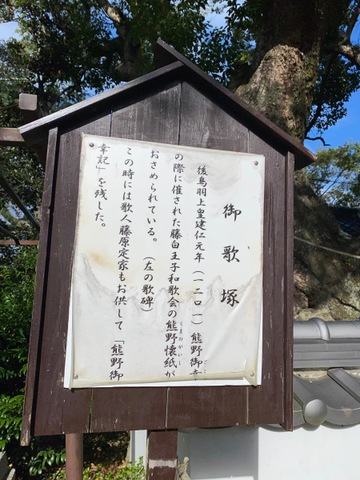 御歌塚
後鳥羽上皇建仁元年（一二〇一）熊野御幸
の際に催された藤白王子和歌会の熊野懐紙が
おさめられている。（左の歌碑）
この時には歌人藤原定家もお供して「熊野御
幸記」を残した。